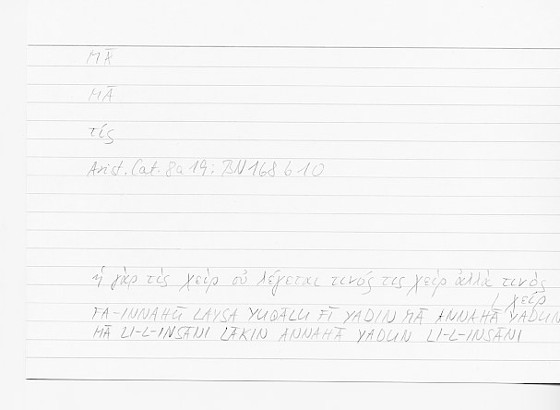 MĀ
MĀ
τίς
Arist. Cat. 8a 19; BN 168 b 10
ἡ γάρ τις χεὶρ οὐ λέγεται τινός τις χεὶρ ἀλλὰ τινὸς
χείρ
FA-INNAHŪ LAYSA YUQĀLU FĪ YADIN MĀ ANNAHĀ YADUN
MĀ LI-L-INSĀNI LĀKIN ANNAHĀ YADUN LI-L-INSĀNI